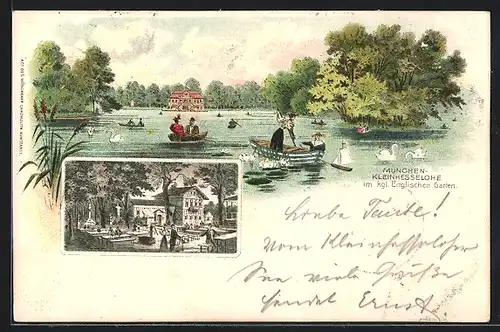 MÜNCHEN-
KLEINHESSELOHE
im kgl. Englischen Garten.
Liebe Tante!
Vom Kleinhesseloher
See viele Grüße
sendet Ernst.